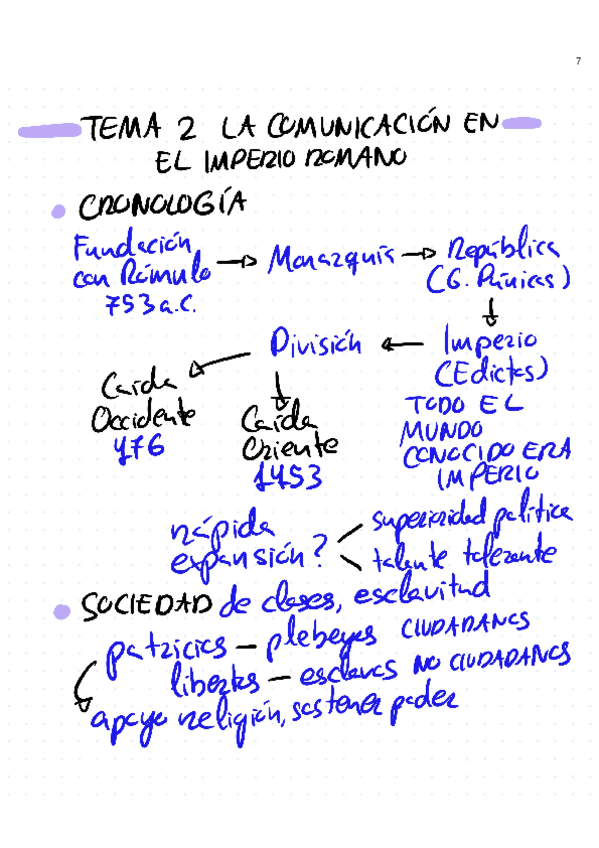 7
TEMA 2 LA COMUNICACIÓN EN
EL IMPERIO ROMANO
CRONOLOGÍA
Fundación
con Rómulo
753 a.C.
→ Monarquía → República
(G. Púnicas)
División ← Imperio
(Edictos)
TODO EL
MUNDO
CONOCIDO ERA
IMPERIO
Caída
Occidente
476
Caída
Oriente
1453
rápida
expansión?
superioridad política
talante tolerante
SOCIEDAD de clases, esclavitud
patricios – plebeyos CIUDADANOS
libertos – esclavos NO CIUDADANOS
apoyo religión, sostener poder